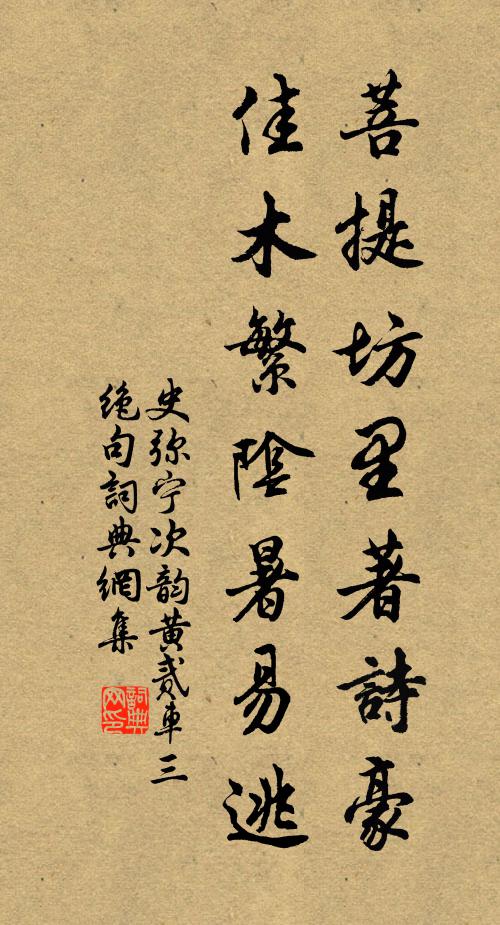 菩提坊里著詩豪
佳木繁陰暑易逃
史弥宁次韵黄贰車三
絶句詞典網集
詞典网印